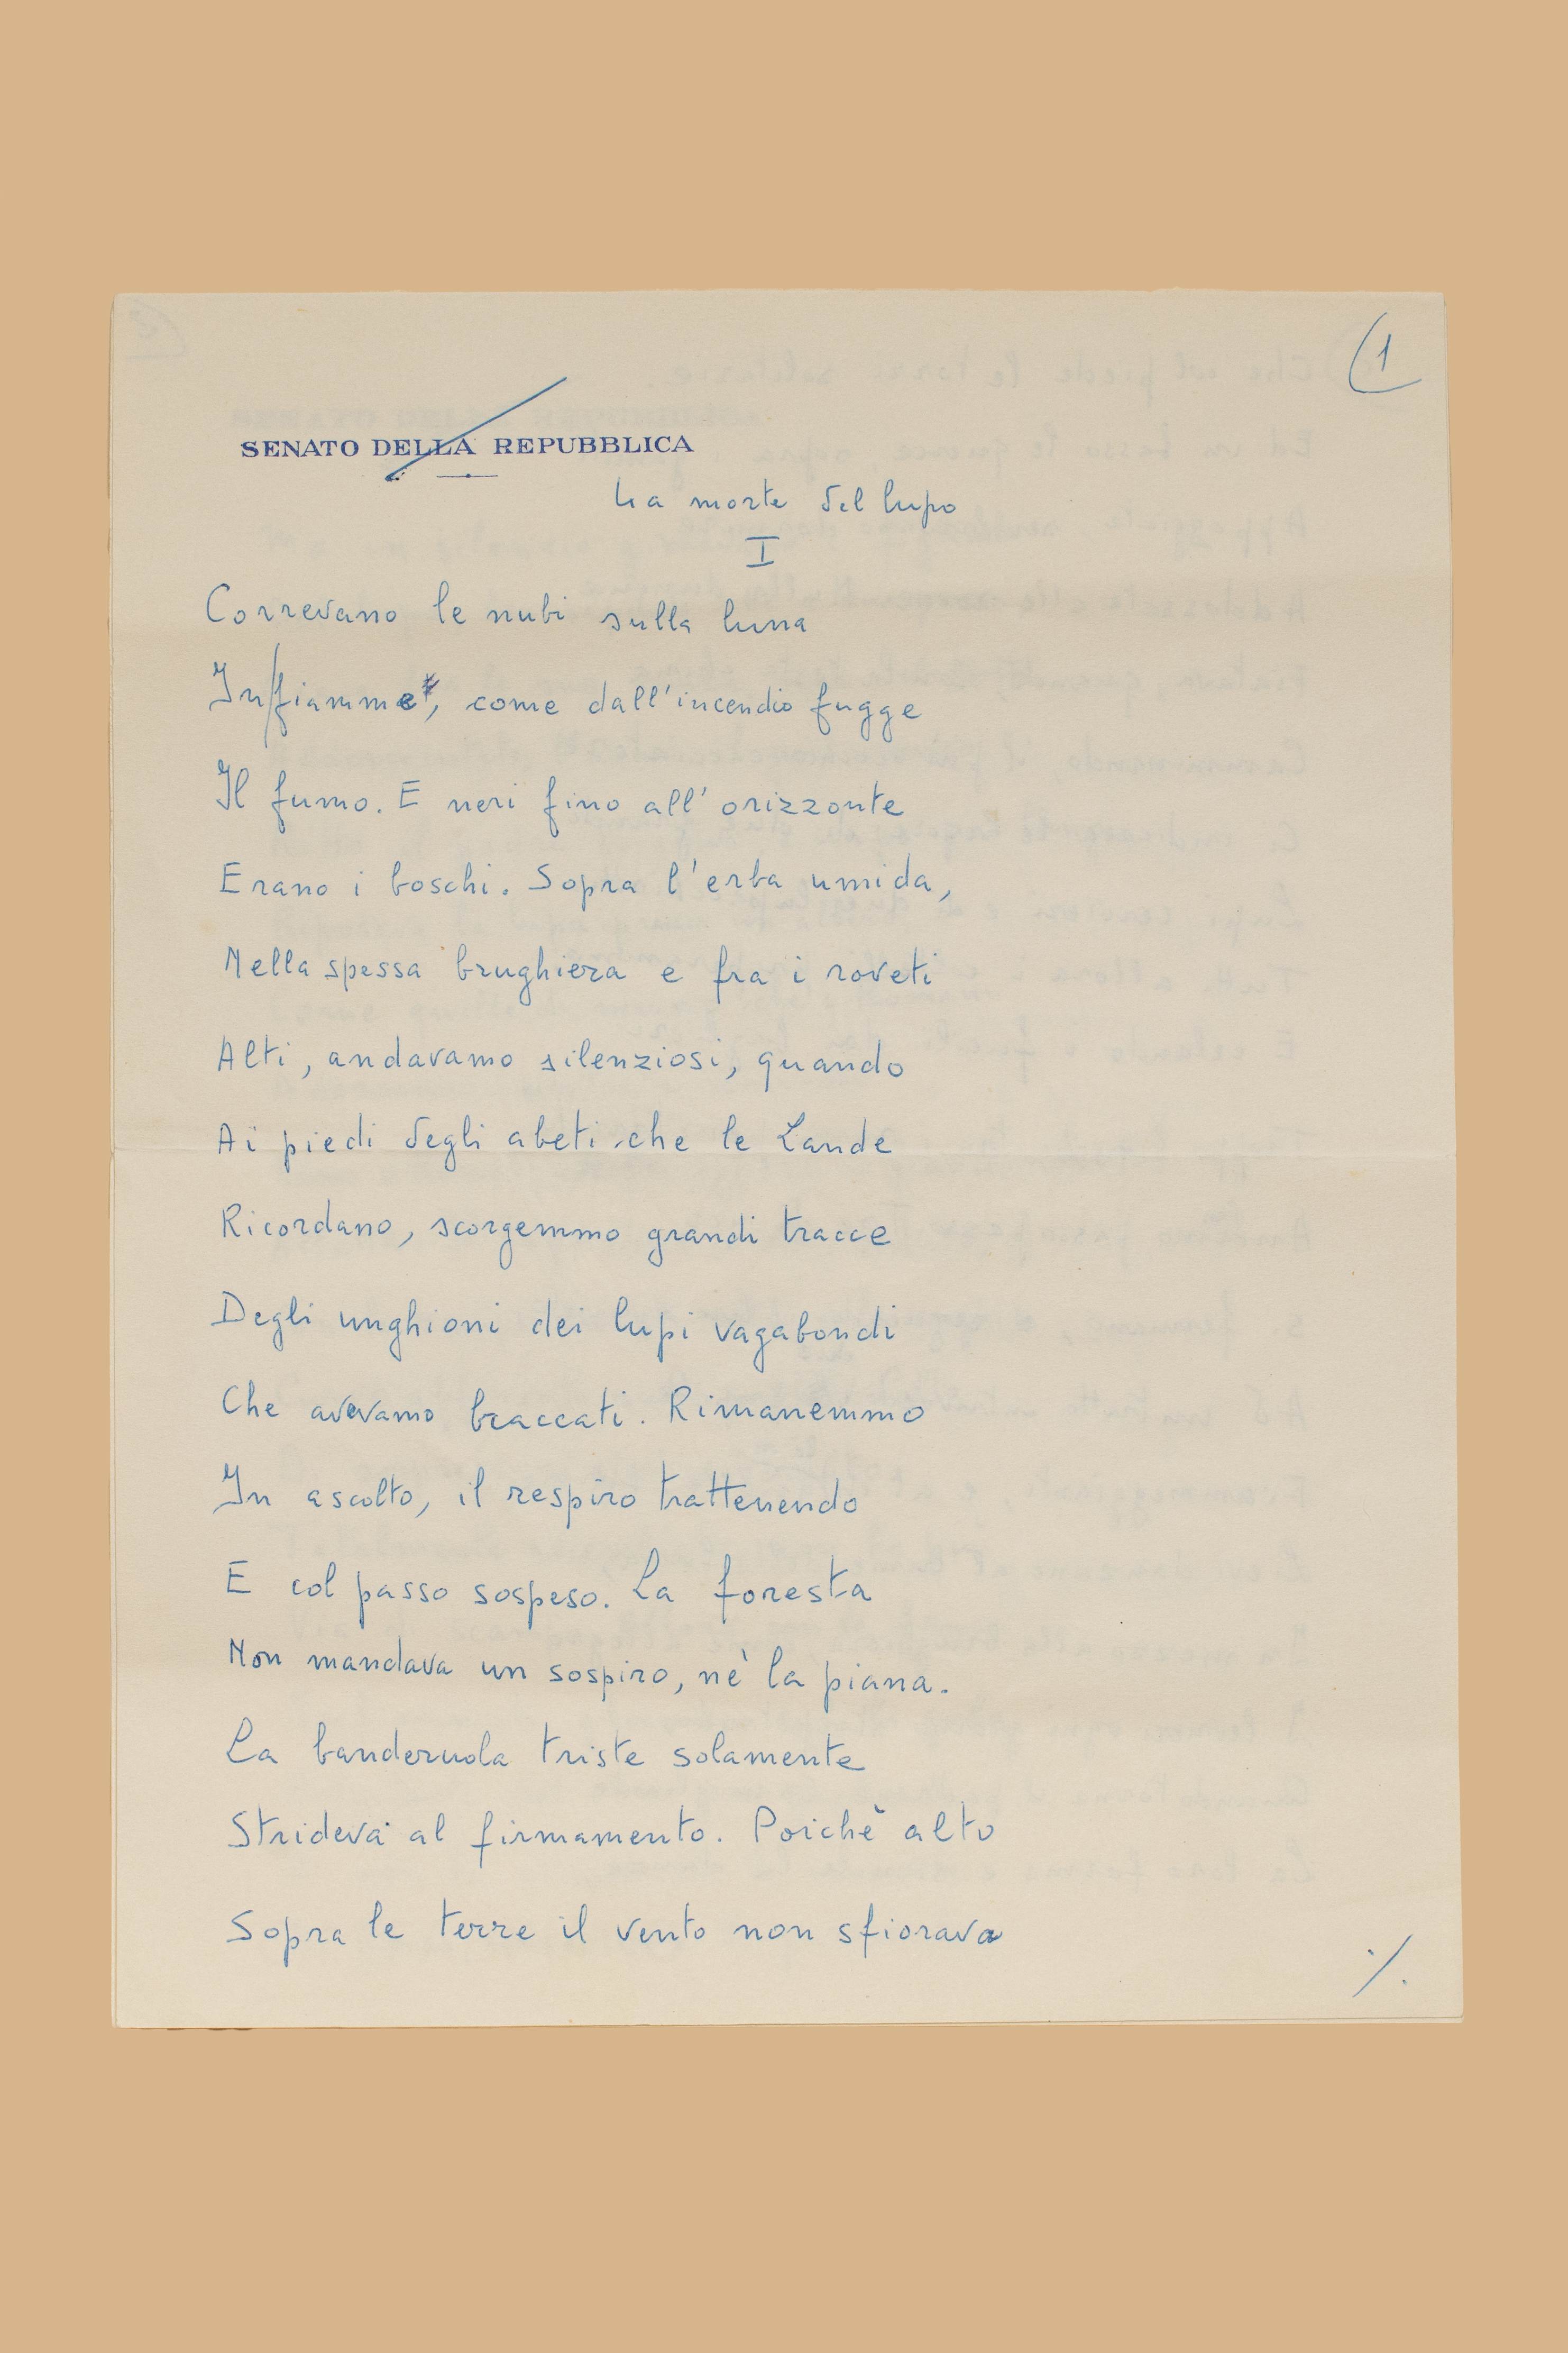 1
SENATO DELLA REPUBBLICA
La morte del lupo
I
Correvano le nubi sulla luna
In fiamme, come dall'incendio fugge
Il fumo. E neri fino all'orizzonte
Erano i boschi. Sopra l'erba umida,
Nella spessa brughiera e fra i roveti
Alti, andavamo silenziosi, quando
Ai piedi degli abeti che le Lande
Ricordano, scorgemmo grandi tracce
Degli unghioni dei lupi vagabondi
Che avevamo braccati. Rimanemmo
In ascolto, il respiro trattenendo
E col passo sospeso. La foresta
Non mandava un sospiro, nè la piana.
La banderuola triste solamente
Strideva al firmamento. Poichè alto
Sopra le terre il vento non sfiorava
./.